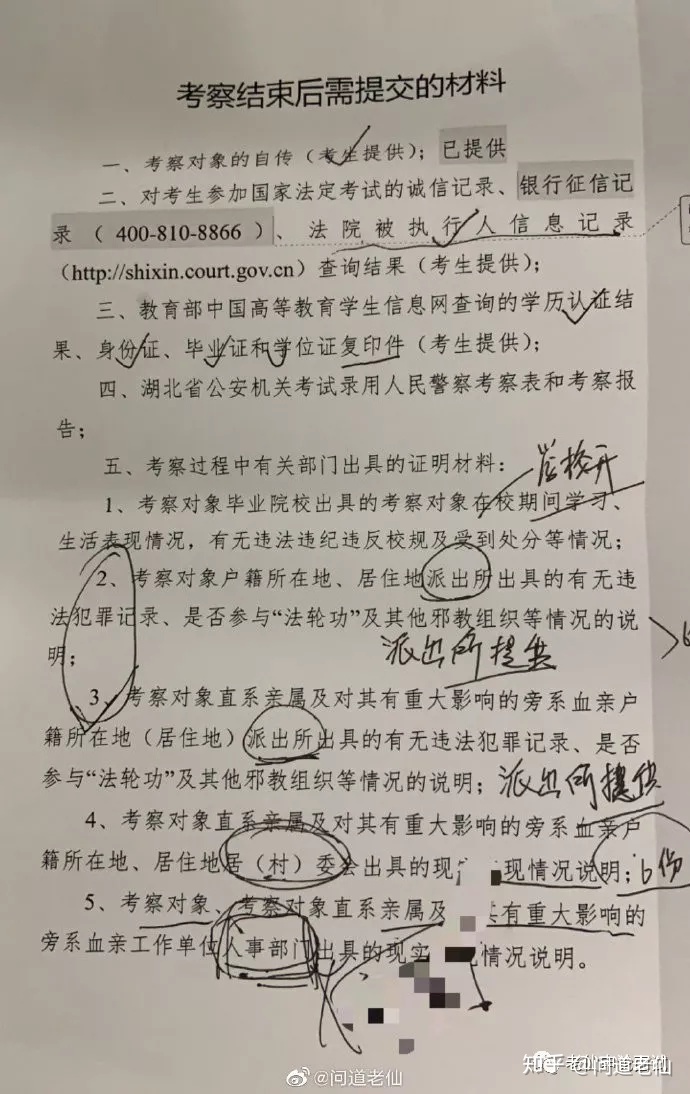 考察结束后需提交的材料
一、考察对象的自传（考生提供）；已提供
二、对考生参加国家法定考试的诚信记录、银行征信记
录（400-810-8866）、法院被执行人信息记录
（http://shixin.court.gov.cn）查询结果（考生提供）；
三、教育部中国高等教育学生信息网查询的学历认证结
果、身份证、毕业证和学位证复印件（考生提供）；
四、湖北省公安机关考试录用人民警察考察表和考察报
告；
五、考察过程中有关部门出具的证明材料：
1、考察对象毕业院校出具的考察对象在校期间学习、
生活表现情况，有无违法违纪违反校规及受到处分等情况；
2、考察对象户籍所在地、居住地派出所出具的有无违
法犯罪记录、是否参与“法轮功”及其他邪教组织等情况的说
明；
派出所提供
3、考察对象直系亲属及对其有重大影响的旁系血亲户
籍所在地（居住地）派出所出具的有无违法犯罪记录、是否
参与“法轮功”及其他邪教组织等情况的说明；派出所提供
4、考察对象直系亲属及对其有重大影响的旁系血亲户
籍所在地、居住地居（村）委会出具的现 现情况说明；6份
5、考察对象、考察对象直系亲属及 其有重大影响的
旁系血亲工作单位人事部门出具的现实 情况说明。
@问道老仙
知乎